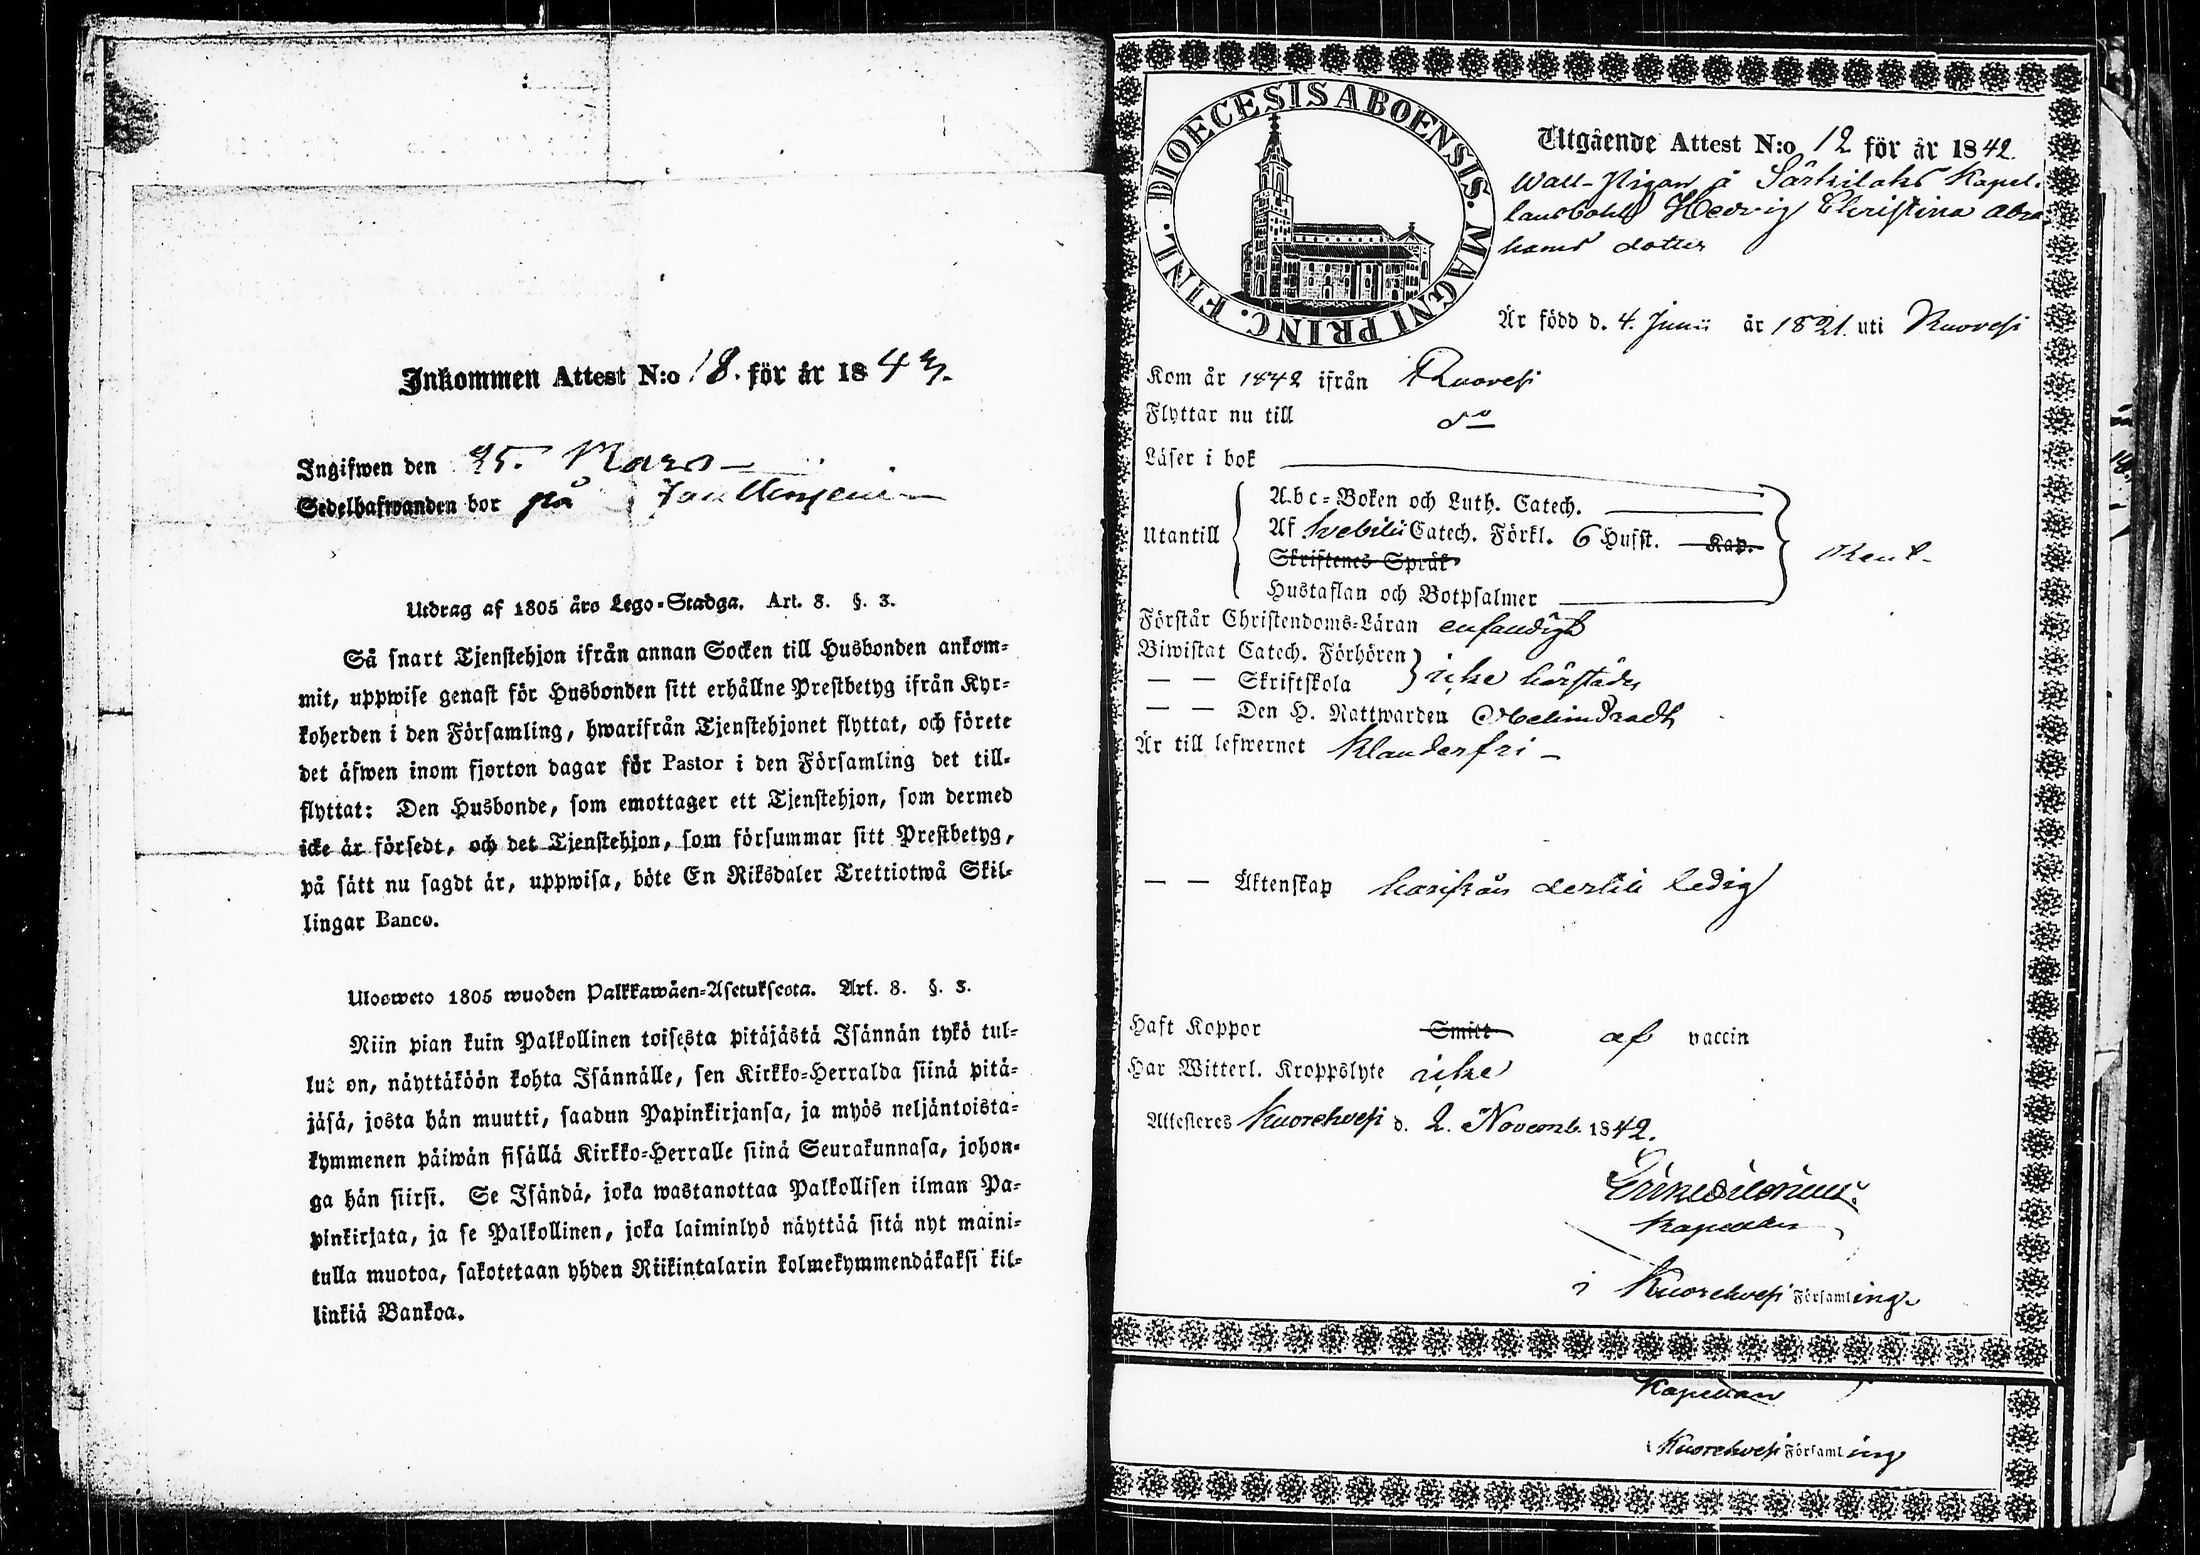 Inkommen Attest N:o 18. för år 1843.
Ingifwen den 25. Mars
Sedelhafwanden bor på
Utdrag af 1805 års Lego-Stadga. Art. 8. §. 3.
Så snart Tjenstehjon ifrån annan Socken till Husbonden ankom-
mit, uppwise genast för Husbonden sitt erhållne Prestbetyg ifrån Kyr-
koherden i den Församling, hwarifrån Tjenstehjonet flyttat, och förete
det äfwen inom fjorton dagar för Pastor i den Församling det till-
flyttat: Den Husbonde, som emottager ett Tjenstehjon, som dermed
icke är försedt, och det Tjenstehjon, som försummar sitt Prestbetyg,
på sätt nu sagdt är, uppwisa, böte En Riksdaler Trettiotwå Skil-
lingar Banco.
Ulosweto 1805 wuoden Palkkawäen-Asetuksesta. Art. 8. §. 3.
Niin pian kuin Palkollinen toisesta pitäjästä Isännän tykö tul-
lut on, näyttäköön kohta Isännälle, sen Kirkko-Herralda siinä pitä-
jäsä, josta hän muutti, saadun Papinkirjansa, ja myös neljäntoista-
kymmenen päiwän sisällä Kirkko-Herralle siinä Seurakunnasa, johon-
ga hän siirsi. Se Isändä, joka wastanottaa Palkollisen ilman Pa-
pinkirjata, ja se Palkollinen, joka laiminlyö näyttää sitä nyt maini-
tulla muotoa, sakotetaan yhden Riikintalarin kolmekymmendäkaksi kil-
linkiä Bankoa.
DIOECESIS ABOENSIS. MAGNI PRINC. FINL.
Utgående Attest N:o 12 för år 1842.
Wall-Pigan å Särkilaks Kapel-
lansbohl Hedvig Christina Abra
hams dotter
Är född d. 4. Junii år 1821. uti Ruovesi
Kom år 1842 ifrån Ruovesi
Flyttar nu till do
Läser i bok
Utantill
A.b.c-Boken och Luth. Catech.
Af Svebilii Catech. Förkl. 6 Hufst. Kap.
Skriftenes Språk
Hustaflan och Botpsalmer
Förstår Christendoms-Läran enfaldigt
Biwistat Catech. Förhören
— — Skriftskola icke härstädes
— — Den H. Nattwarden
Är till lefwernet klanderfri
— — Äktenskap härifrån ledig
Haft Koppor Smitt af vaccin
Har Witterl. Kroppslyte icke
Attesteres Kuorehvesi d. 2. Novemb. 1842.
Kapellan
i Kuorehvesi Församling
Kapellan
i Kuorehvesi Församling